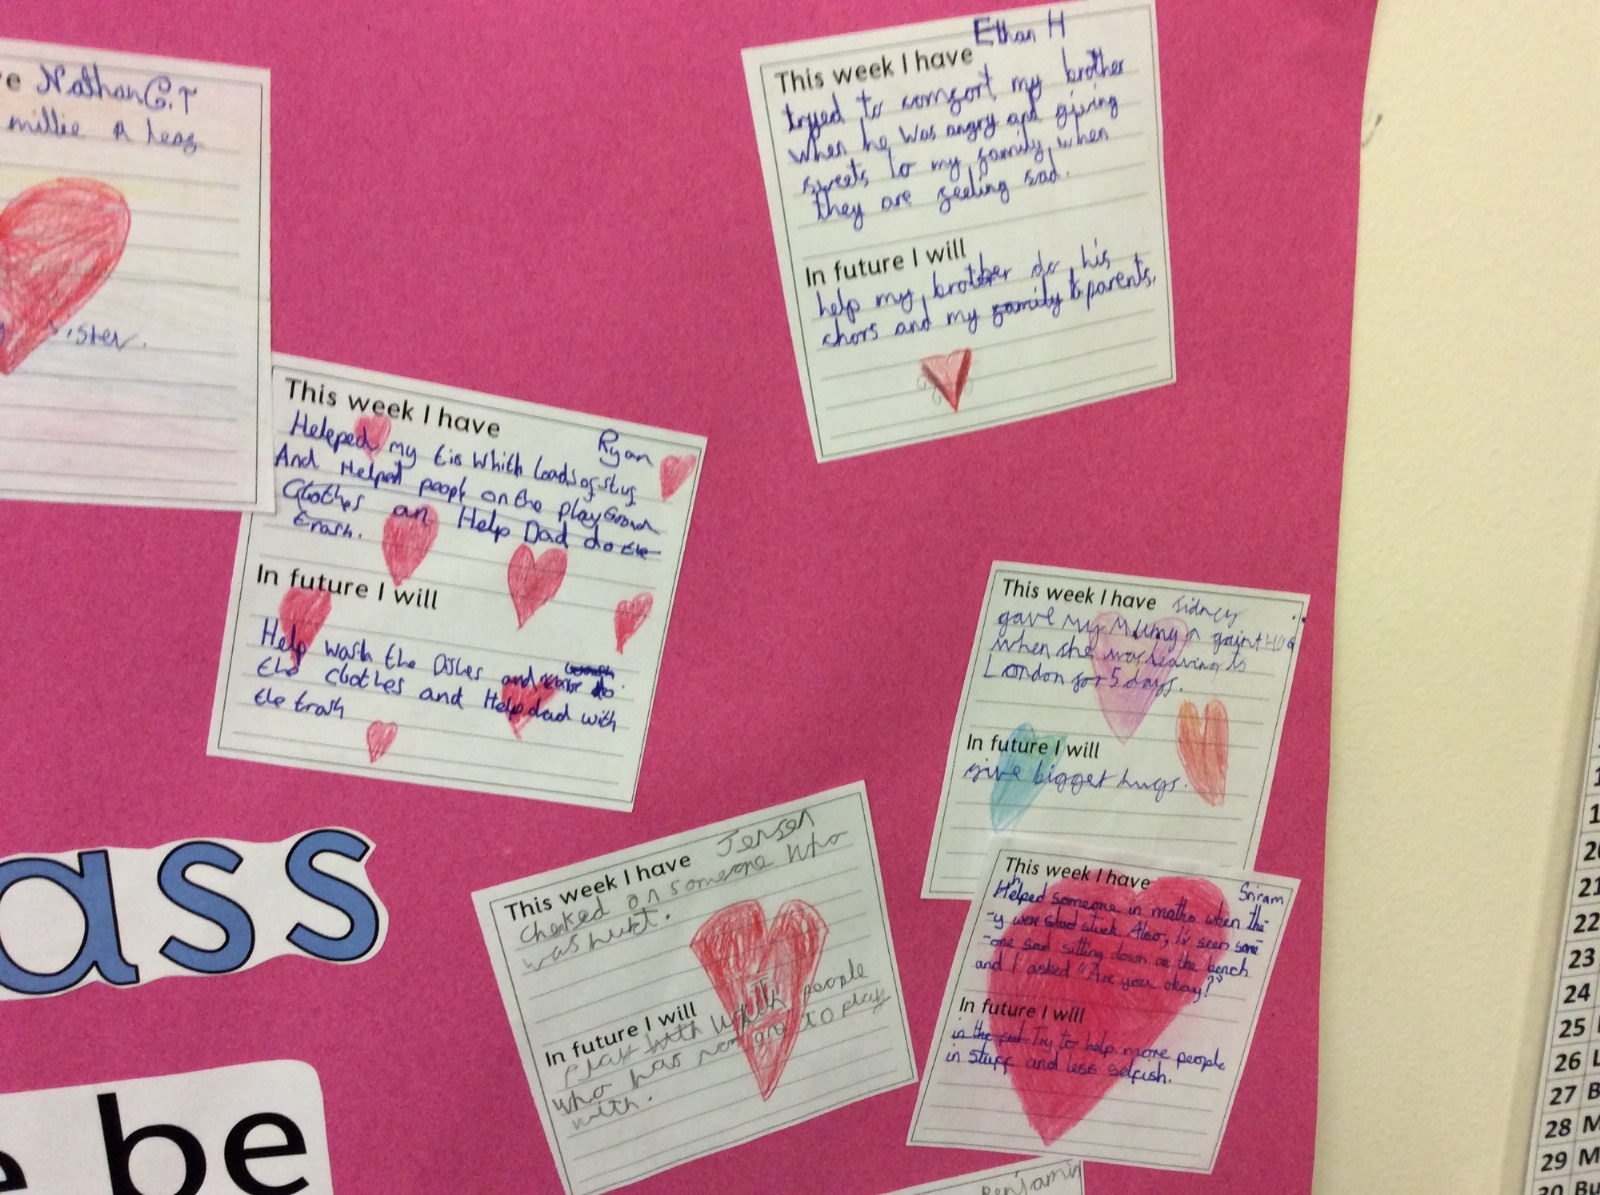 e Nathan G.T
millie A heag
sister.
Ethan H
This week I have
tryed to comfort my brother
when he was angry and giving
sweets to my family when
they are feeling sad.
In future I will
help my brother do his
chors and my family & parents.
This week I have
Ryan
Heleped my Sis Whith loads of stuf
And Helped people on the play Ground
Clothes an Help Dad do the
trash.
In future I will
Help wash the Dishes and do
the clothes and Help dad with
the trash
This week I have Sidney
gave my Mumy a gaint HUG
when she was leaving to
London for 5 days.
In future I will
give bigger hugs.
This week I have Jensen
cheked on someone who
was hurt.
In future I will
play with whith people
who has to play
with.
This week I have
Sriram
Helped someone in maths when the-
-y were stuck. Also, I'v seen some-
-one sad sitting down on the bench
and I asked "Are you okay?"
In future I will
in the Try to help more people
in stuff and less selfish.
ass
e be
Benjamin
20
21
22
23
24
25
26 L
27 B
28 M
29 M
30 Bu